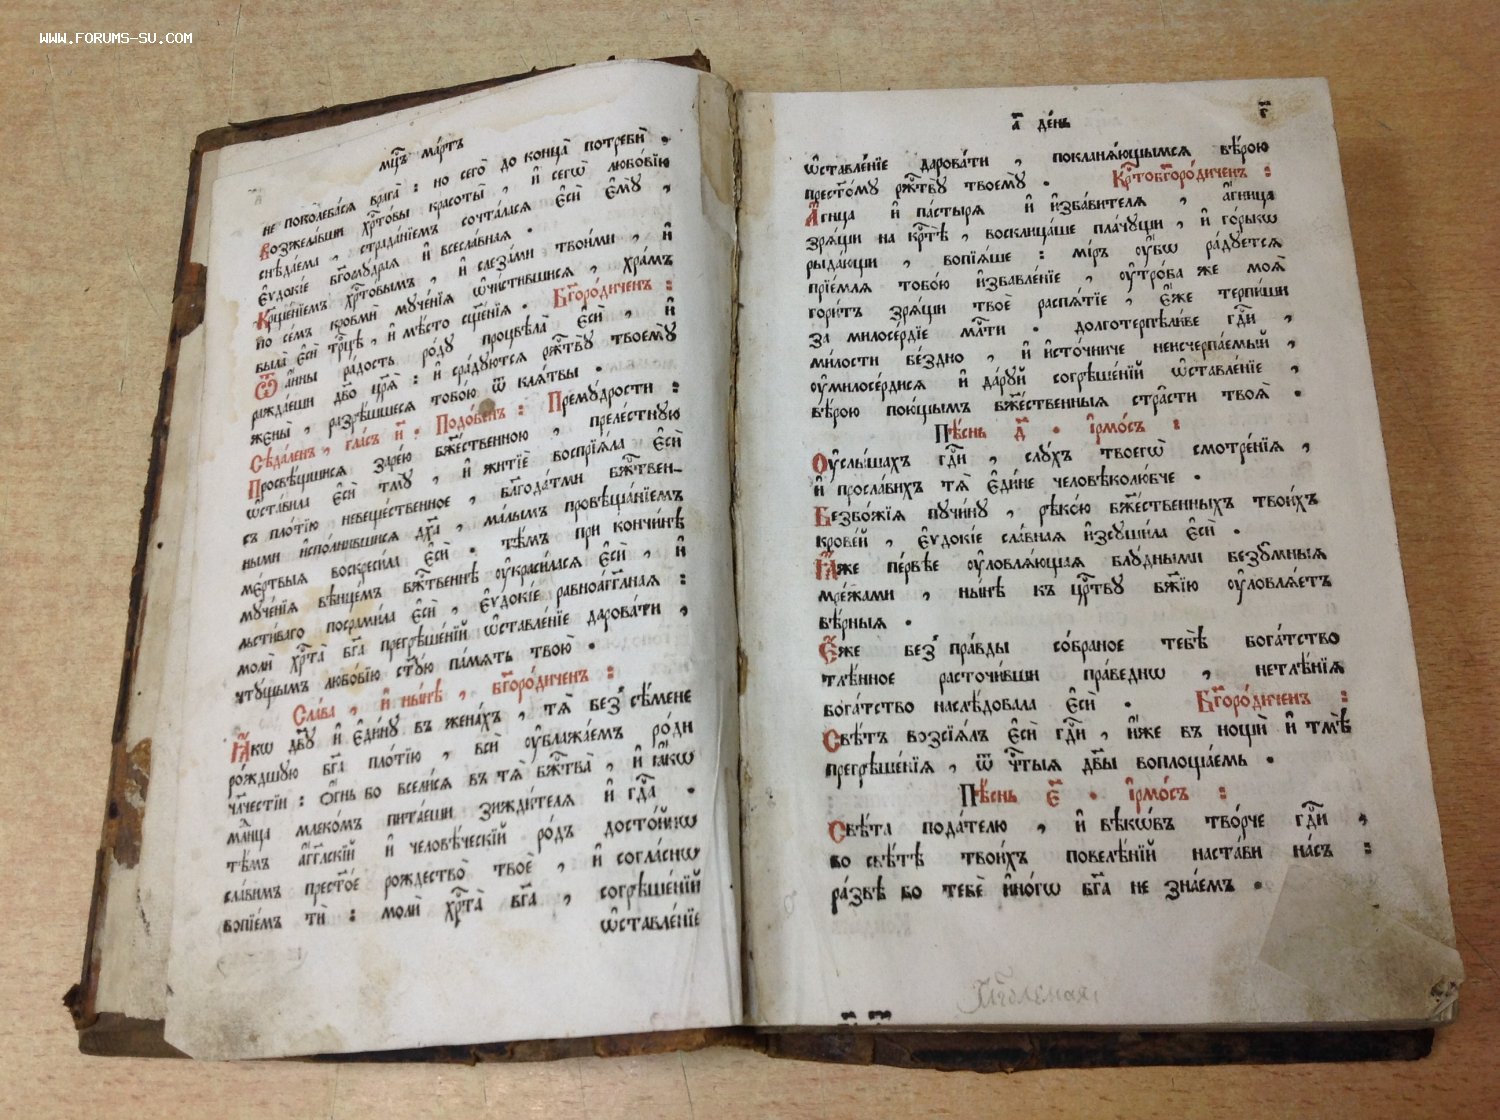 WWW.FORUMS-SU.COM
мцⷭ҇ъ ма́ртъ
не поколеба́сѧ врага̀ : но сего̀ до конца̀ потребѝ .
Возжела́вши хрⷭ҇то́вы красоты̀ , и҆ сегѡ̀ любо́вїю
снѣда́ема , страда́нїемъ сочта́ласѧ є҆сѝ є҆мꙋ̀ ,
є҆ѵдокі́е бг҃омꙋ́драѧ и҆ всесла́внаѧ .
Крⷳ҇ще́нїемъ хрⷭ҇то́вымъ , и҆ слеза́ми твои́ми , и҆
по се́мъ кровмѝ мꙋче́нїѧ ѡ҆чи́стившисѧ , хра́мъ
была̀ є҆сѝ трⷪ҇цѣ , и҆ мѣ́сто сщ҃е́нїѧ . Бг҃оро́диченъ :
Ѿ а҆́нны ра́дость ро́дꙋ процвѣла̀ є҆сѝ , и҆
ражда́еши дв҃о цр҃ѧ̀ : и҆ сра́дꙋютсѧ ржⷭ҇твꙋ̀ твоемꙋ̀
жены̀ , разрѣ́шшесѧ тобо́ю ѿ клѧ́твы .
Сѣда́ленъ , гла́съ и҃ . Подо́бенъ : Премꙋ́дрости :
Просвѣ́щшисѧ заре́ю бж҃е́ственною , преле́стнꙋю
ѡ҆ста́вила є҆сѝ тмꙋ̀ , и҆ житїѐ воспрїѧ́ла є҆сѝ
съ пло́тїю невеще́ственное , благода́тми бжⷭ҇твен-
ными и҆спо́лнившисѧ дх҃а , ма́лымъ провѣща́нїемъ
ме́ртвыѧ воскреси́ла є҆сѝ . тѣ́мъ при кончи́нѣ
мꙋче́нїѧ вѣнце́мъ бжⷭ҇твеннѣ ᲂу҆краси́ласѧ є҆сѝ , и҆
льсти́ваго посрами́ла є҆сѝ , є҆ѵдокі́е равноа́гг҃льнаѧ :
молѝ хрⷭ҇та̀ бг҃а прегрѣше́нїй ѡ҆ставле́нїе дарова́ти ,
чтꙋ́щымъ любо́вїю ст҃ꙋ́ю па́мѧть твою̀ .
Сла́ва , и҆ ны́нѣ , бг҃оро́диченъ :
Ꙗ҆́кѡ дв҃ꙋ и҆ є҆ди́нꙋ въ жена́хъ , тѧ̀ без̾ сѣ́мене
ро́ждшꙋю бг҃а пло́тїю , всѝ ᲂу҆блажа́емъ ро́ди
чл҃вѣ́честїи : ѻ҆́гнь бо всели́сѧ въ тѧ̀ бжⷭ҇тва̀ , и҆ ꙗ҆́кѡ
млⷣнца млеко́мъ пита́еши зижди́телѧ и҆ гдⷭ҇а .
тѣ́мъ а҆́гг҃льскїй и҆ человѣ́ческїй ро́дъ досто́йнѡ
сла́вимъ прест҃о́е рождество̀ твоѐ , и҆ согла́снѡ
вопїе́мъ тѝ : молѝ хрⷭ҇та̀ бг҃а , согрѣше́нїй
ѡ҆ставле́нїе
а҃ де́нь г҃
ѡ҆ставле́нїе дарова́ти , покланѧ́ющымсѧ вѣ́рою
прест҃о́мꙋ ржⷭ҇твꙋ̀ твоемꙋ̀ . Крⷭ҇тобг҃оро́диченъ :
А҆́гнца и҆ па́стырѧ и҆ и҆зба́вителѧ , а҆́гница
зрѧ́щи на крⷭ҇тѣ̀ , восклица́ше пла́чꙋщи , и҆ го́рькѡ
рыда́ющи , вопїѧ́ше : мі́ръ ᲂу҆́бѡ ра́дꙋетсѧ
прїе́млѧ тобо́ю и҆збавле́нїе , ᲂу҆тро́ба же моѧ̀
гори́тъ зрѧ́щи твоѐ распѧ́тїе , є҆́же терпи́ши
за милосе́рдїе мл҃ти . долготерпѣли́ве гдⷭ҇и ,
ми́лости бе́здно , и҆ и҆сто́чниче неисчерпа́емый ,
ᲂу҆милосе́рдисѧ и҆ да́рꙋй согрѣше́нїй ѡ҆ставле́нїе ,
вѣ́рою пою́щымъ бж҃е́ственныѧ стра̑сти твоѧ̑ .
Пѣ́снь д҃ . і҆рмо́съ :
Оу҆слы́шахъ гдⷭ҇и , слꙋ́хъ твоегѡ̀ смотре́нїѧ ,
и҆ просла́вихъ тѧ̀ є҆ди́не человѣколю́бче .
Безбо́жїѧ пꙋчи́нꙋ , рѣко́ю бж҃е́ственныхъ твои́хъ
крове́й , є҆ѵдокі́е сла́внаѧ и҆зсꙋши́ла є҆сѝ .
Ꙗ҆́же пе́рвѣе ᲂу҆ловлѧ́ющаѧ блꙋ́дными безꙋ́мныѧ
мре́жами , ны́нѣ къ црⷭ҇твꙋ бж҃їю ᲂу҆ловлѧ́етъ
вѣ̑рныѧ .
Є҆́же без̾ пра́вды со́браное тебѣ̀ бога́тство
тлѣ́нное расточи́вши пра́веднѡ , нетлѣ́нїѧ
бога́тство наслѣ́довала є҆сѝ . Бг҃оро́диченъ :
Свѣ́тъ возсїѧ́лъ є҆сѝ гдⷭ҇и , и҆́же въ нощѝ и҆ тмѣ̀
прегрѣше́нїѧ , ѿ чⷭ҇тыѧ дв҃ы воплоща́емь .
Пѣ́снь є҃ . і҆рмо́съ :
Свѣ́та пода́телю , и҆ вѣкѡ́въ тво́рче гдⷭ҇и ,
во свѣ́тѣ твои́хъ повелѣ́нїй наста́ви на́съ :
ра́звѣ бо тебѐ и҆но́гѡ бг҃а не зна́емъ .